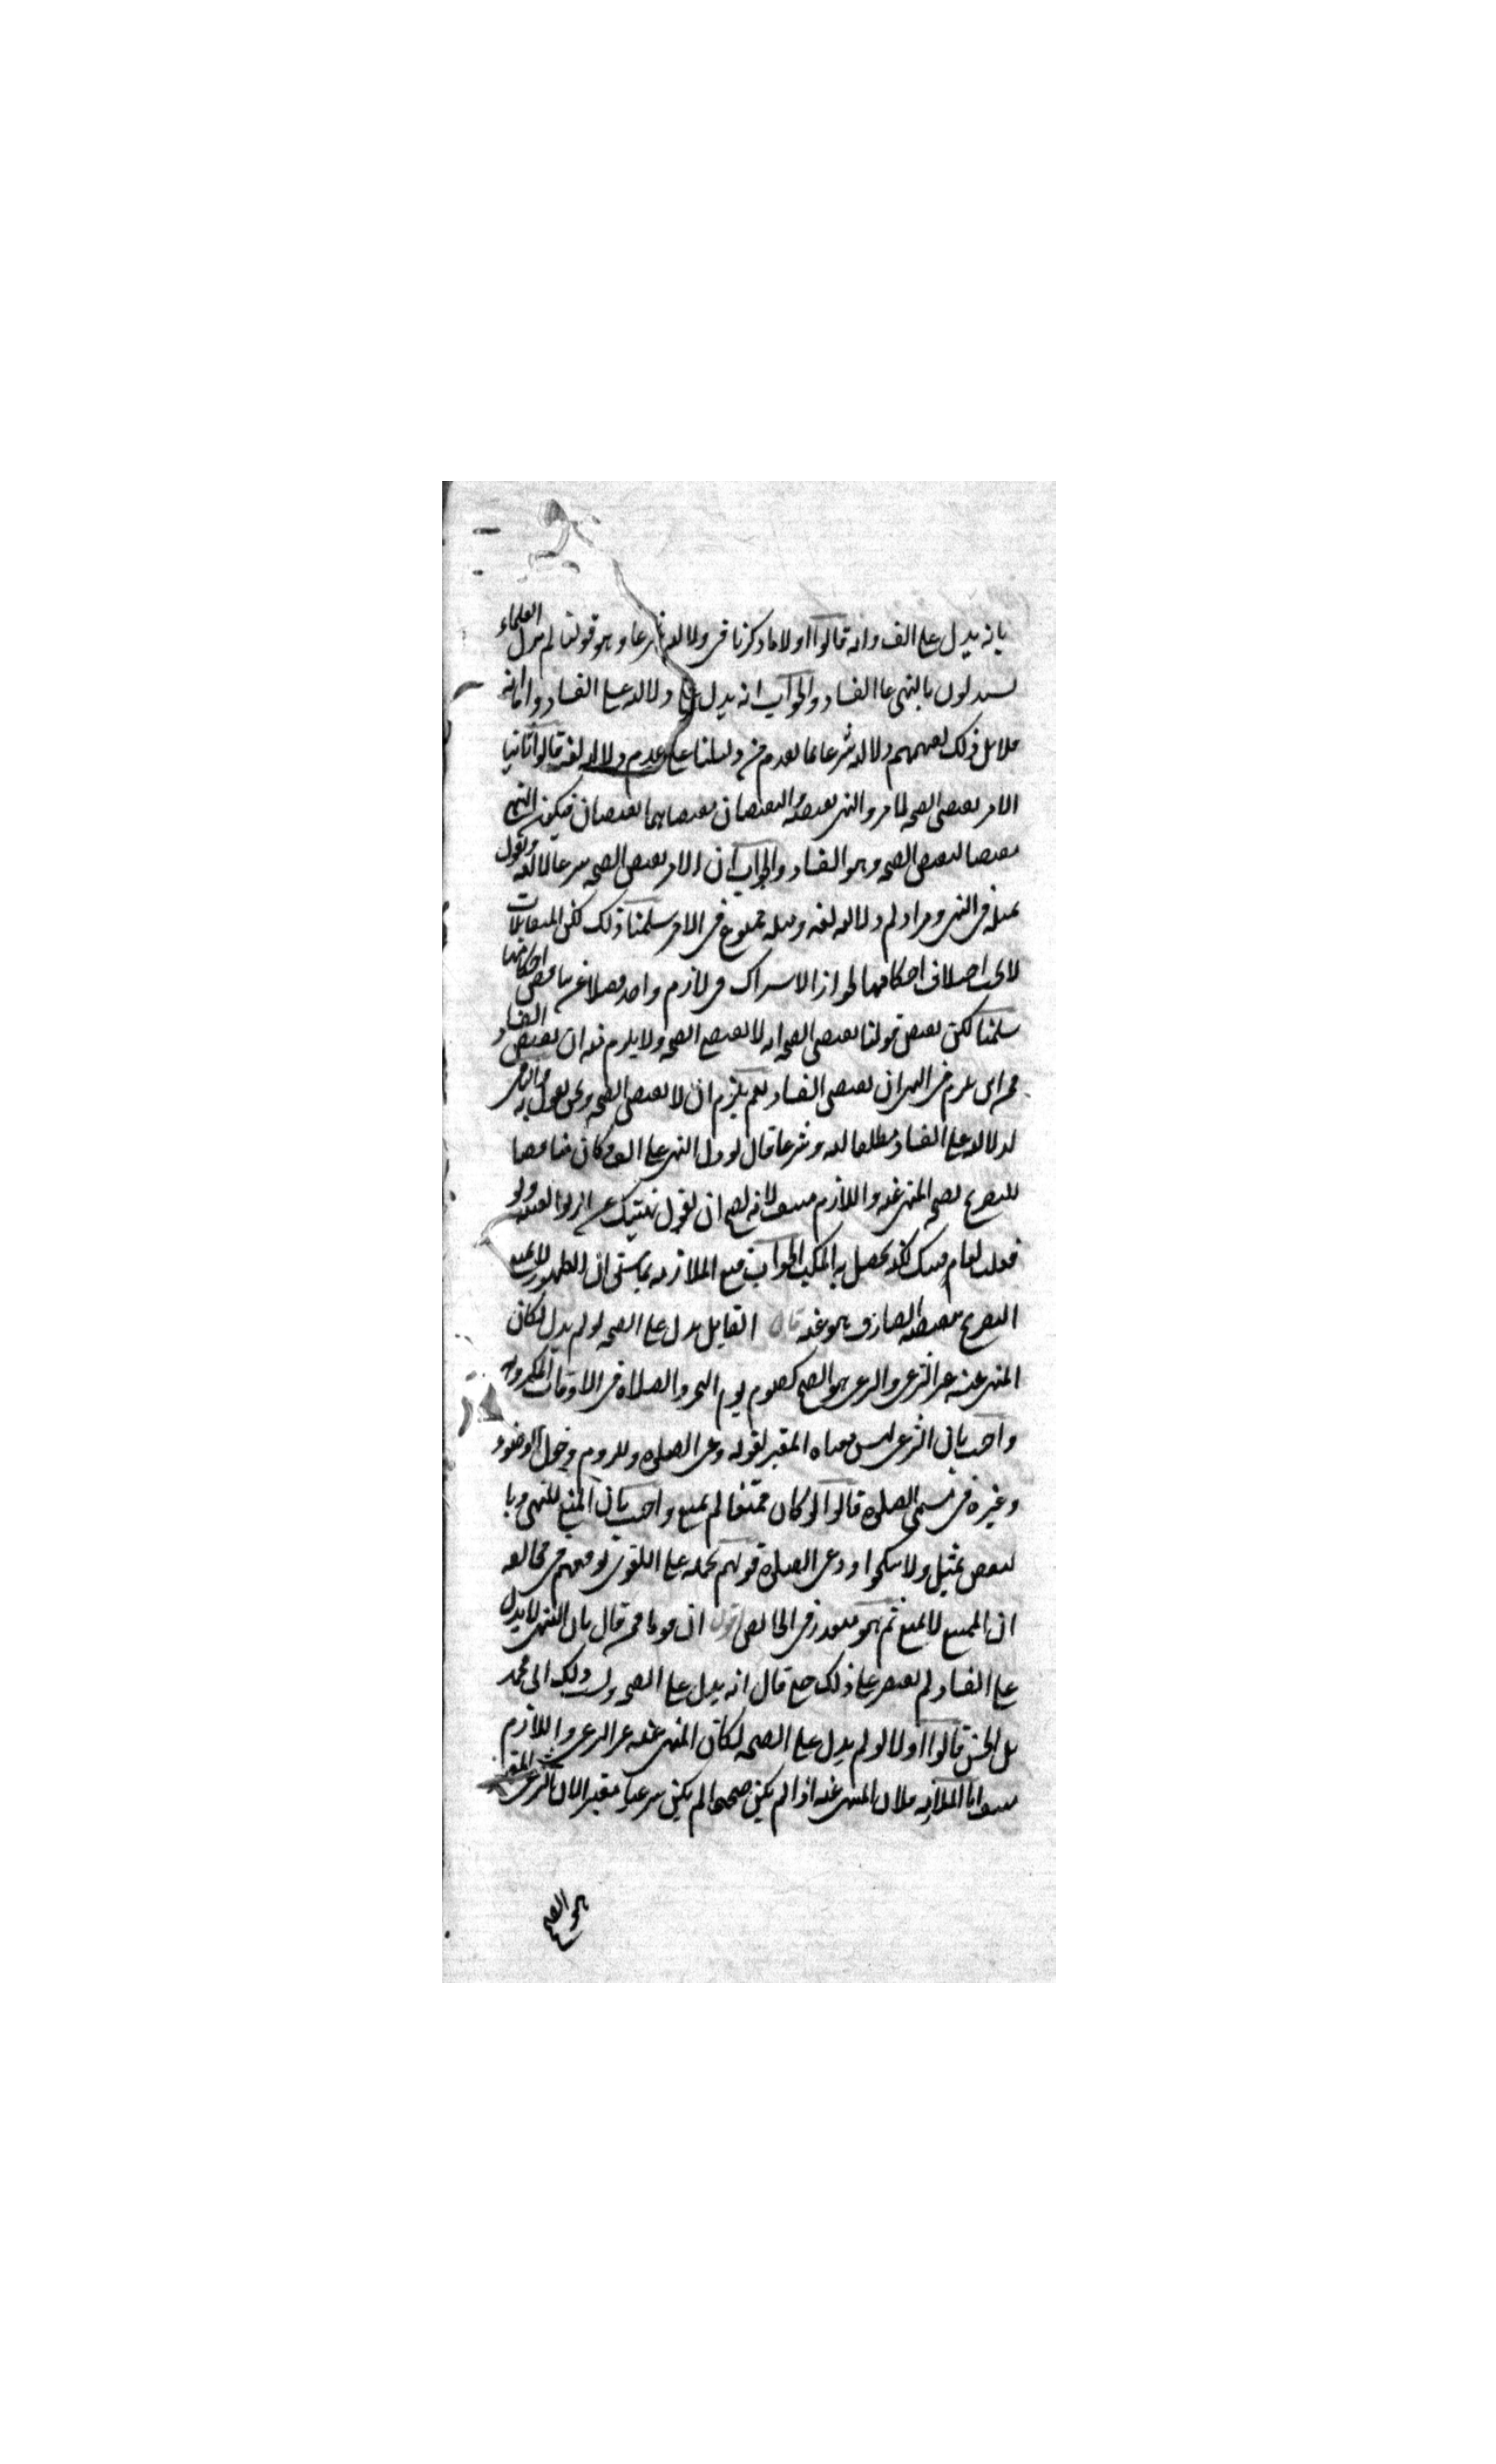 بانه يدل على الفساد لغة قالوا اولا ما ذكرنا في دلالته شرعا وهو قولنا لم يزل العلماء
يستدلون بالنهي على الفساد والجواب انه يدل على دلالته على الفساد واما انه
فلا بل ذلك لفهمهم دلالته شرعا لما تقدم من دليلنا على عدم دلالته لغة قالوا ثانيا
الامر يقتضي الصحة لما مر والنهي نقيضه والنقيضان مقتضاهما نقيضان فيكون النهي
مقتضيا لنقيض الصحة وهو الفساد والجواب ان الامر يقتضي الصحة شرعا لا لغة ونقول
بمثله في النهي ومرادكم دلالته لغة ومثله ممنوع في الامر سلمنا ذلك لكن المتقابلات
لا يجب اختلاف احكامها لجواز الاشتراك في لازم واحد فضلا عن تناقض احكامها
سلمنا لكن نقيض قولنا يقتضي الصحة انه لا يقتضي الصحة ولا يلزم منه ان يقتضي الفساد
فمن اين يلزم في النهي ان يقتضي الفساد نعم يلزم ان لا يقتضي الصحة ونحن نقول به والنافي
لدلالته على الفساد مطلقا لغة وشرعا قال لو دل النهي على الفساد لكان مناقضا
للتصريح بصحة المنهي عنه واللازم منتف لانه يصح ان يقول نهيتك عن الربا لعينه ولو
فعلت لعاقبتك لكنه يحصل به الملك الجواب منع الملازمة بما سبق ان الظهور لا يمنع
التصريح بنقيضه الصارف هو عنه قال القايل يدل على الصحة لو لم يدل لكان
المنهي عنه غير الشرعي والشرعي هو الصحيح كصوم يوم النحر والصلاة في الاوقات المكروهة
واجيب بان الشرعي ليس معناه المعتبر لقوله دعي الصلوة وللزوم دخول الوضوء
وغيره في مسمى الصلوة قالوا لو كان ممتنعا لم يمنع واجيب بان المنع للنهي وبا
لنقض بمثل ولا تنكحوا ودعي الصلوة قولهم نحمله على اللغوي يوقعهم في مخالفة
ان الممتنع لا يمنع ثم هو متعذر في الحائض اقول ان قوما ممن قال بان النهي لا يدل
على الفساد لم يقتصر على ذلك حتى قال انه يدل على الصحة ونسب ذلك الى محمد
بن الحسن قالوا اولا لو لم يدل على الصحة لكان المنهي عنه غير الشرعي واللازم
منتف اما الملازمة فلان المنهي عنه اذا لم يكن صحيحا لم يكن شرعيا معتبرا لان الشرعي المعتبر
هو الصحيح